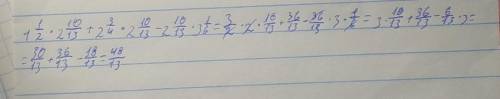 1 1/2 · 2 10/13 + 2 3/4 · 2 10/13 - 2 10/13 · 3 1/6 = 3/2 · 2 · 10/13 + 36/13 - 36/13 · 3 · 1/6 = 3 · 10/13 + 36/13 - 6/13 · 3 =
= 30/13 + 36/13 - 18/13 = 48/13